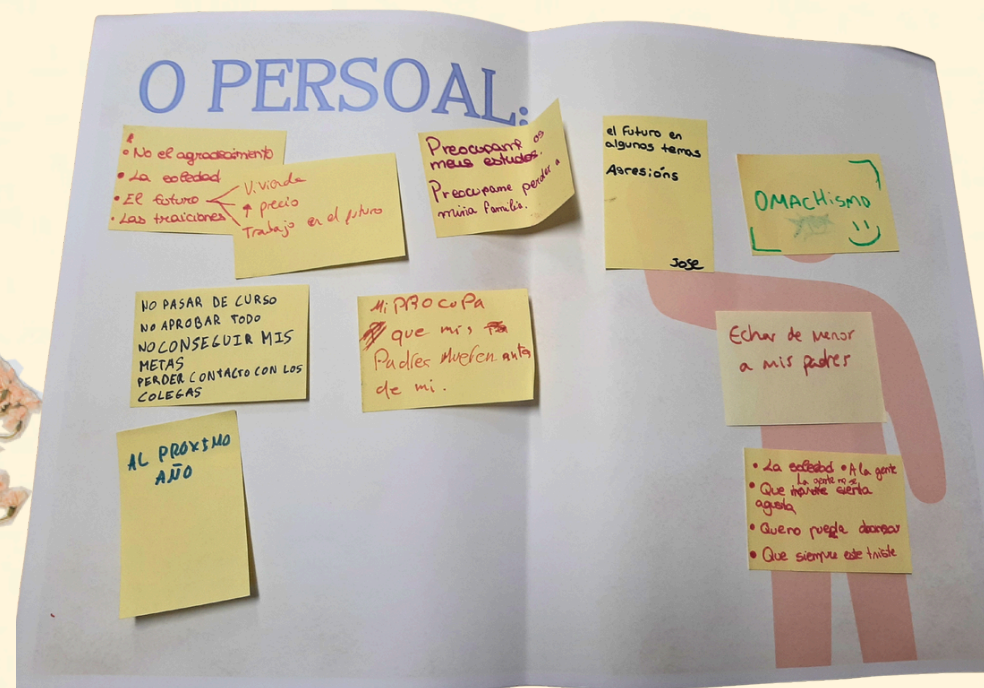 O PERSOAL:
• No el agradecimiento
• La soledad
• El futuro
• Las traiciones
Vivienda
↑ precio
Trabajo en el futuro
Preocupame os
meus estudos.
Preocupame perder a
miña familia.
el futuro en
algunos temas
Agresións
Jose
OMACHISMO
NO PASAR DE CURSO
NO APROBAR TODO
NO CONSEGUIR MIS
METAS
PERDER CONTACTO CON LOS
COLEGAS
Mi PROCUPA
que mis
Padres Mueren antes
de mi.
Echar de menor
a mis padres
AL PROXIMO
AÑO
• La soledad • A la gente
La gente no se
• Que sienta
agusta
• Que no pueda
• Que siempre este triste